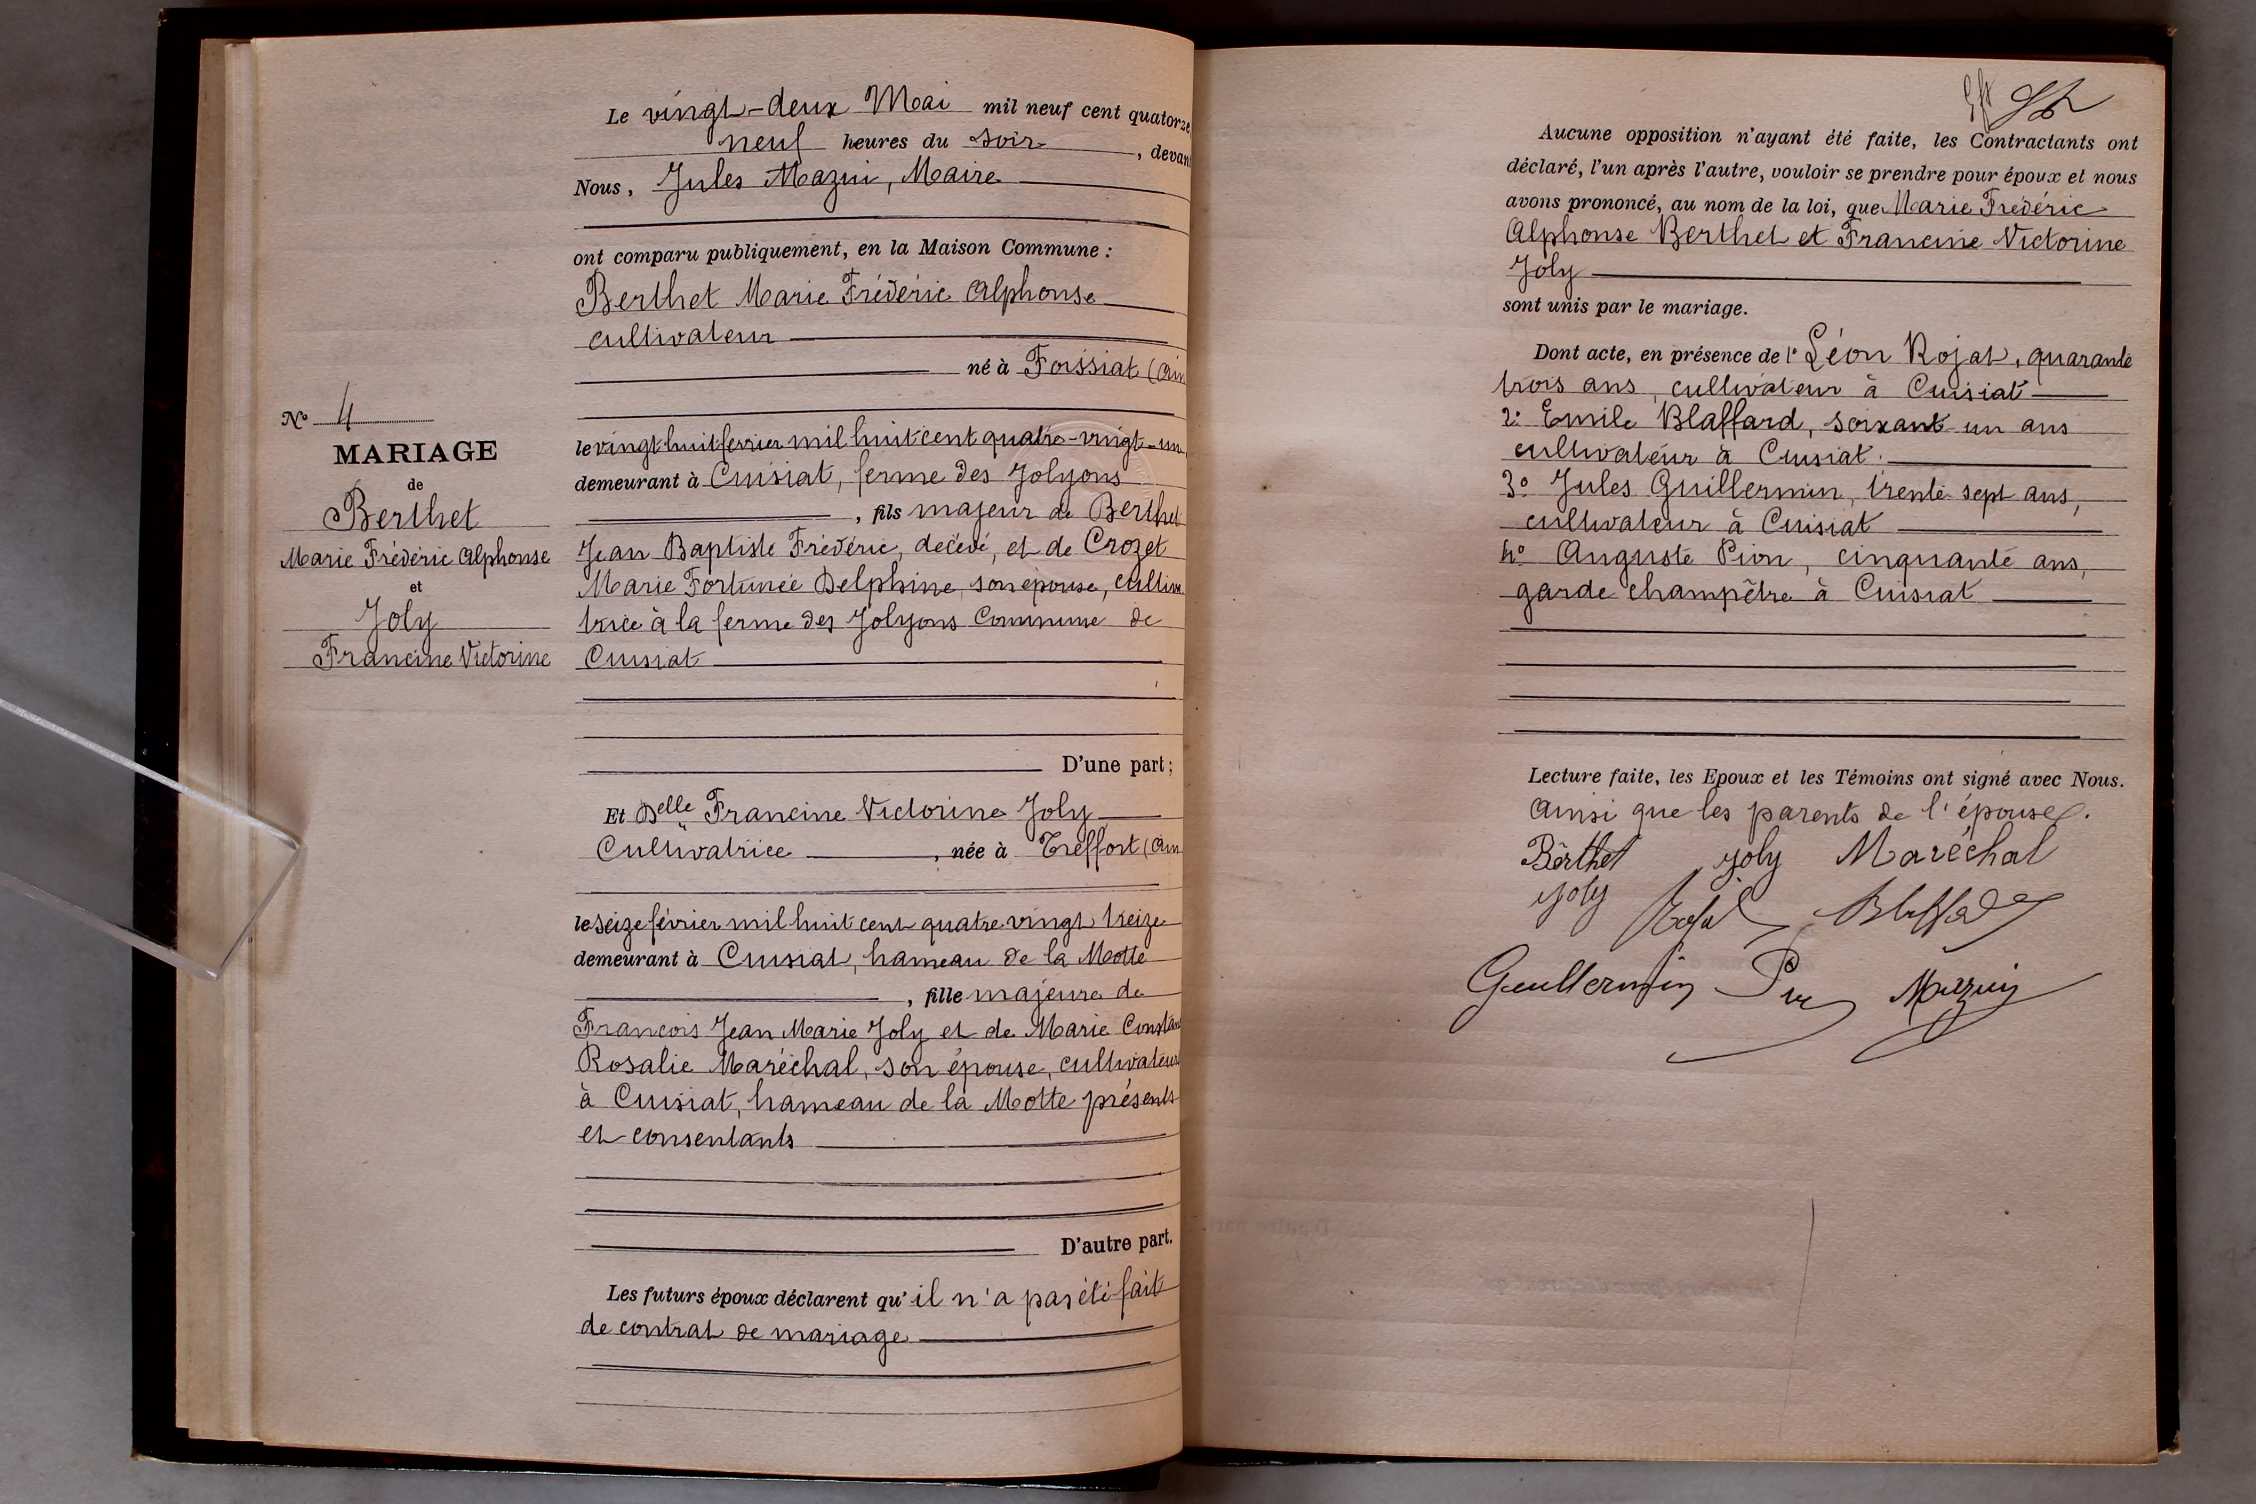 Le vingt-deux Mai mil neuf cent quatorze,
neuf heures du soir, devant
Nous, Jules Mazuir, Maire
ont comparu publiquement, en la Maison Commune :
Berthet Marie Frédéric Alphonse
cultivateur
né à Foissiat (Ain
le vingt huit fevrier mil huit cent quatre-vingt-un
demeurant à Cuisiat, ferme des Jolyons
, fils majeur de Berthet
Jean Baptiste Frédéric, décédé, et de Crozet
Marie Fortunée Delphine, son épouse, cultiva
trice à la ferme des Jolyons Commune de
Cuisiat
D'une part ;
Et Delle Francine Victorine Joly
Cultivatrice, née à Treffort (Ain
le seize février mil huit cent quatre vingt treize
demeurant à Cuisiat, hameau de la Motte
, fille majeure de
François Jean Marie Joly et de Marie Constan
Rosalie Maréchal, son épouse, cultivateurs
à Cuisiat, hameau de la Motte présents
et consentants
D'autre part.
Les futurs époux déclarent qu'il n'a pas été fait
de contrat de mariage
No 4
MARIAGE
de
Berthet
Marie Frédéric Alphonse
et
Joly
Francine Victorine
Aucune opposition n'ayant été faite, les Contractants ont
déclaré, l'un après l'autre, vouloir se prendre pour époux et nous
avons prononcé, au nom de la loi, que Marie Frédéric
Alphonse Berthet et Francine Victorine
Joly
sont unis par le mariage.
Dont acte, en présence de 1° Léon Rojat, quarante
trois ans, cultivateur à Cuisiat
2° Emile Blaffard, soixante un ans
cultivateur à Cuisiat.
3° Jules Guillermin, trente sept ans,
cultivateur à Cuisiat
4° Auguste Pion, cinquante ans,
garde champêtre à Cuisiat
Lecture faite, les Epoux et les Témoins ont signé avec Nous.
Ainsi que les parents de l'épouse.
Berthet Joly Maréchal
Joly Rojat Blaffard
Guillermin Pion Mazuir